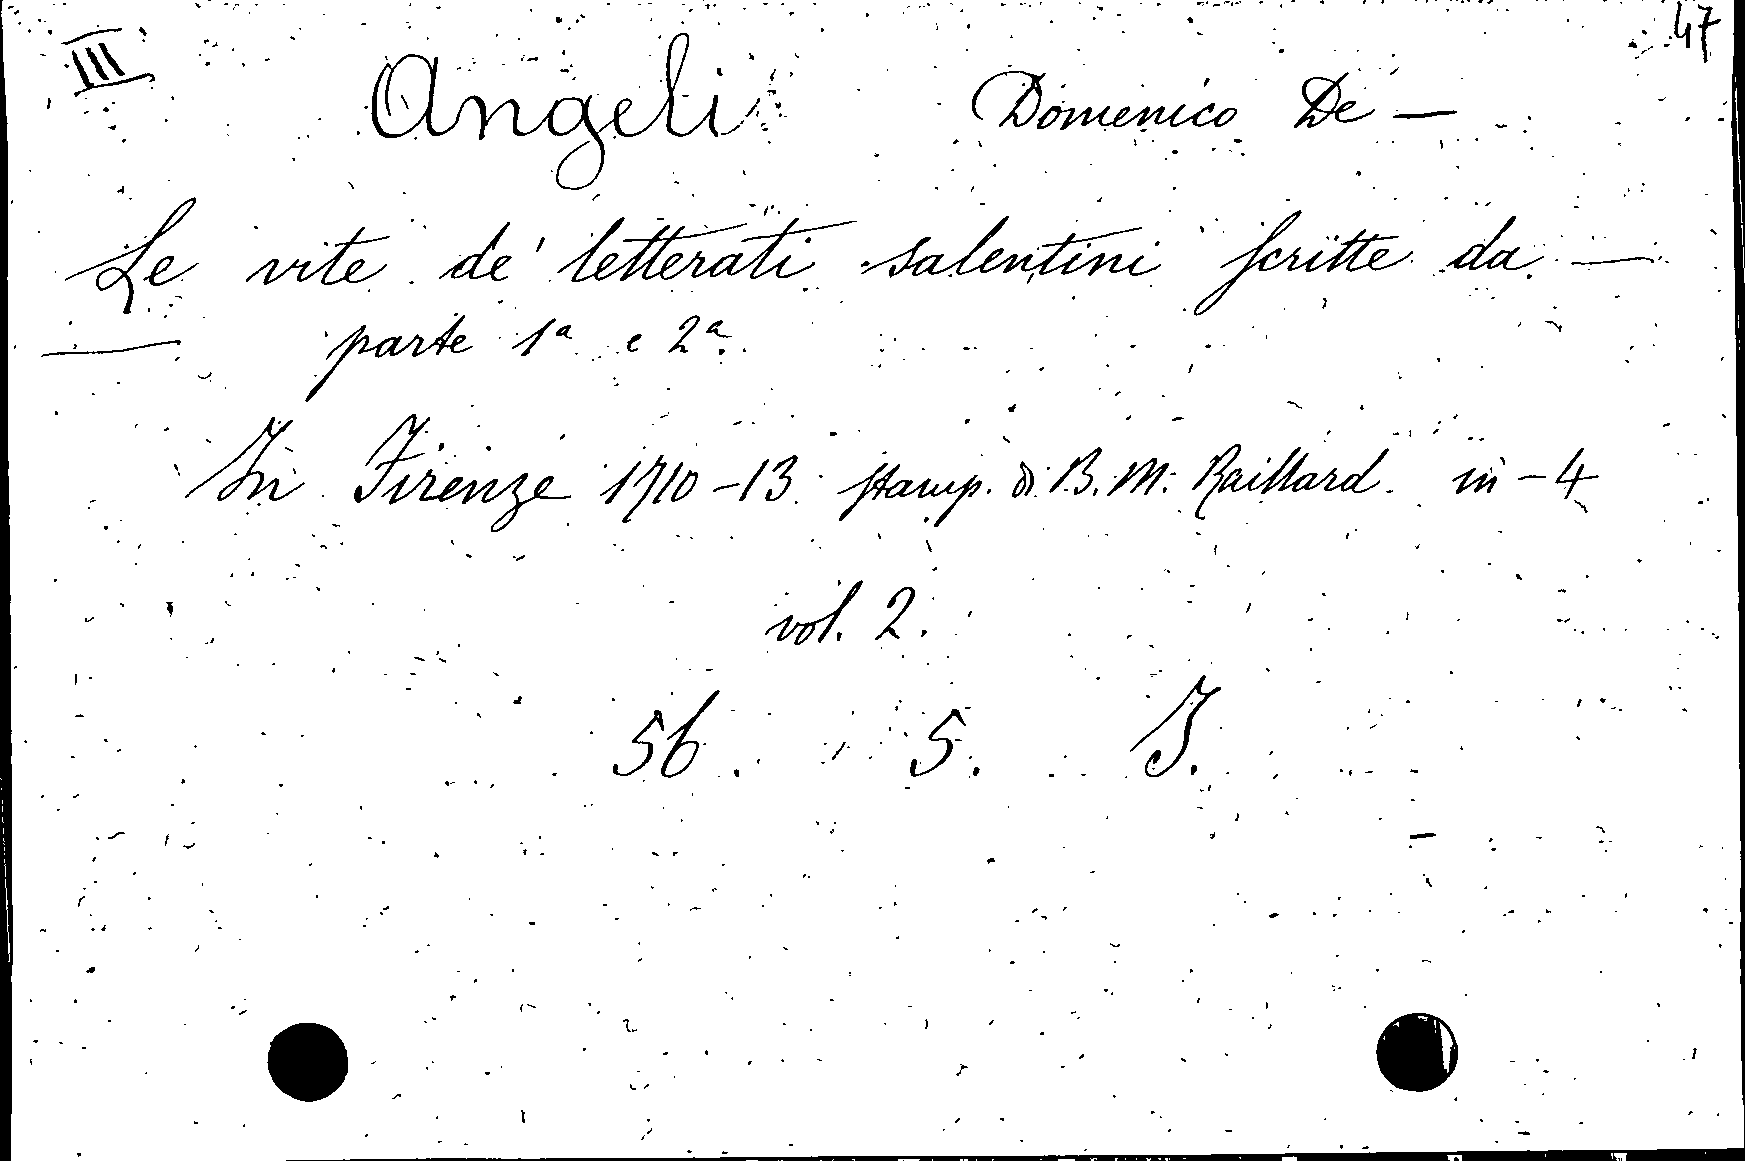 III
47
Angeli Domenico De —
Le vite de' letterati salentini scritte da —
— parte 1ª e 2ª.
In Firenze 1710-13 stamp. di B. M. Raillard in-4
vol. 2.
56. 5. I.